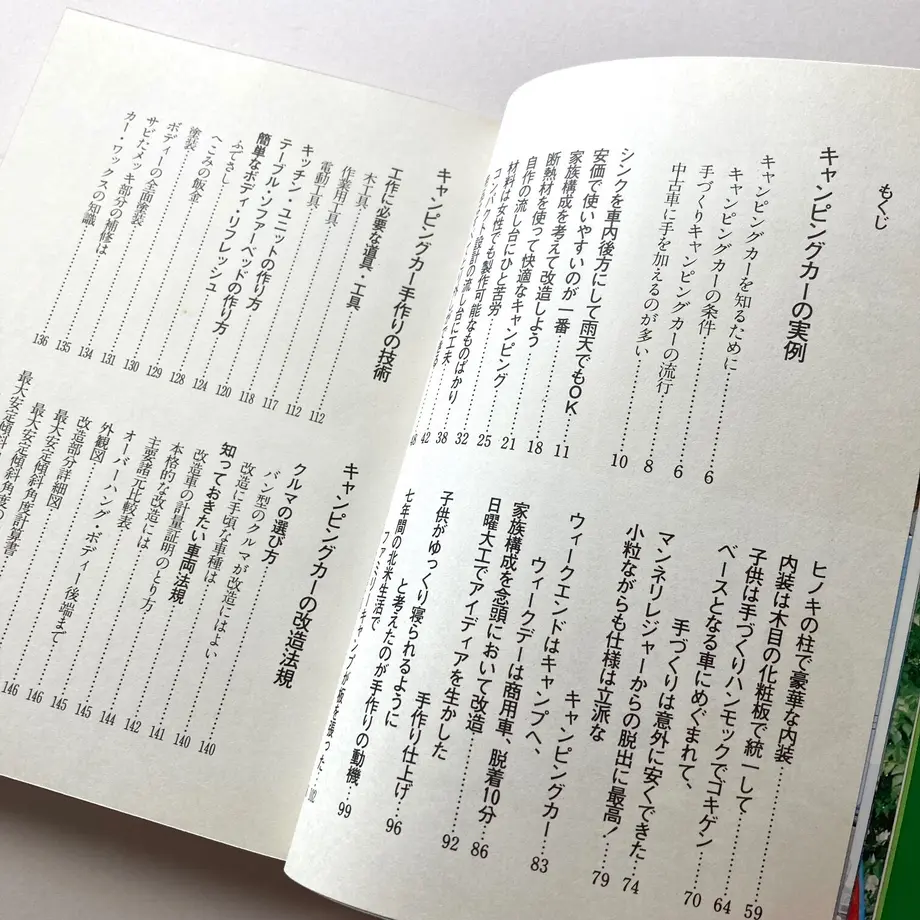 もくじ
キャンピングカーの実例
キャンピングカーを知るために……6
キャンピングカーの条件……6
手づくりキャンピングカーの流行……8
中古車に手を加えるのが多い……10
シンクを車内後方にして雨天でもOK……11
安価で使いやすいのが一番……18
家族構成を考えて改造しよう……21
断熱材を使って快適なキャンピング……25
自作の流し台にひと苦労……32
材料は女性でも製作可能なものばかり……38
コンパクト設計の流し台に工夫……42
48
ヒノキの柱で豪華な内装……59
内装は木目の化粧板で統一して……64
子供は手づくりハンモックでゴキゲン……70
ベースとなる車にめぐまれて、
手づくりは意外に安くできた……74
マンネリレジャーからの脱出に最高!……79
小粒ながらも仕様は立派な
キャンピングカー……83
ウィークエンドはキャンプへ、
ウィークデーは商用車、脱着10分……86
家族構成を念頭において改造……92
日曜大工でアイディアを生かした
手作り仕上げ……96
子供がゆっくり寝られるように
と考えたのが手作りの動機……99
七年間の北米生活で
ファミリーキャンプが板を張った……102
キャンピングカー手作りの技術
工作に必要な道具・工具……112
木工具……112
作業用工具……117
電動工具……118
キッチン・ユニットの作り方……120
テーブル・ソファーベッドの作り方……124
簡単なボディ・リフレッシュ……128
ふでさし……129
へこみの鈑金……130
塗装……131
ボディーの全面塗装……134
サビたメッキ部分の補修は……135
カー・ワックスの知識……136
キャンピングカーの改造法規
クルマの選び方……140
バン型のクルマが改造にはよい……140
改造に手頃な車種は……141
知っておきたい車両法規……142
改造車の計量証明のとり方……144
本格的な改造には……145
主要諸元比較表……145
オーバーハング・ボディー後端まで……146
外観図……146
改造部分詳細図
最大安定傾斜角度計算書
最大安定傾斜角度の